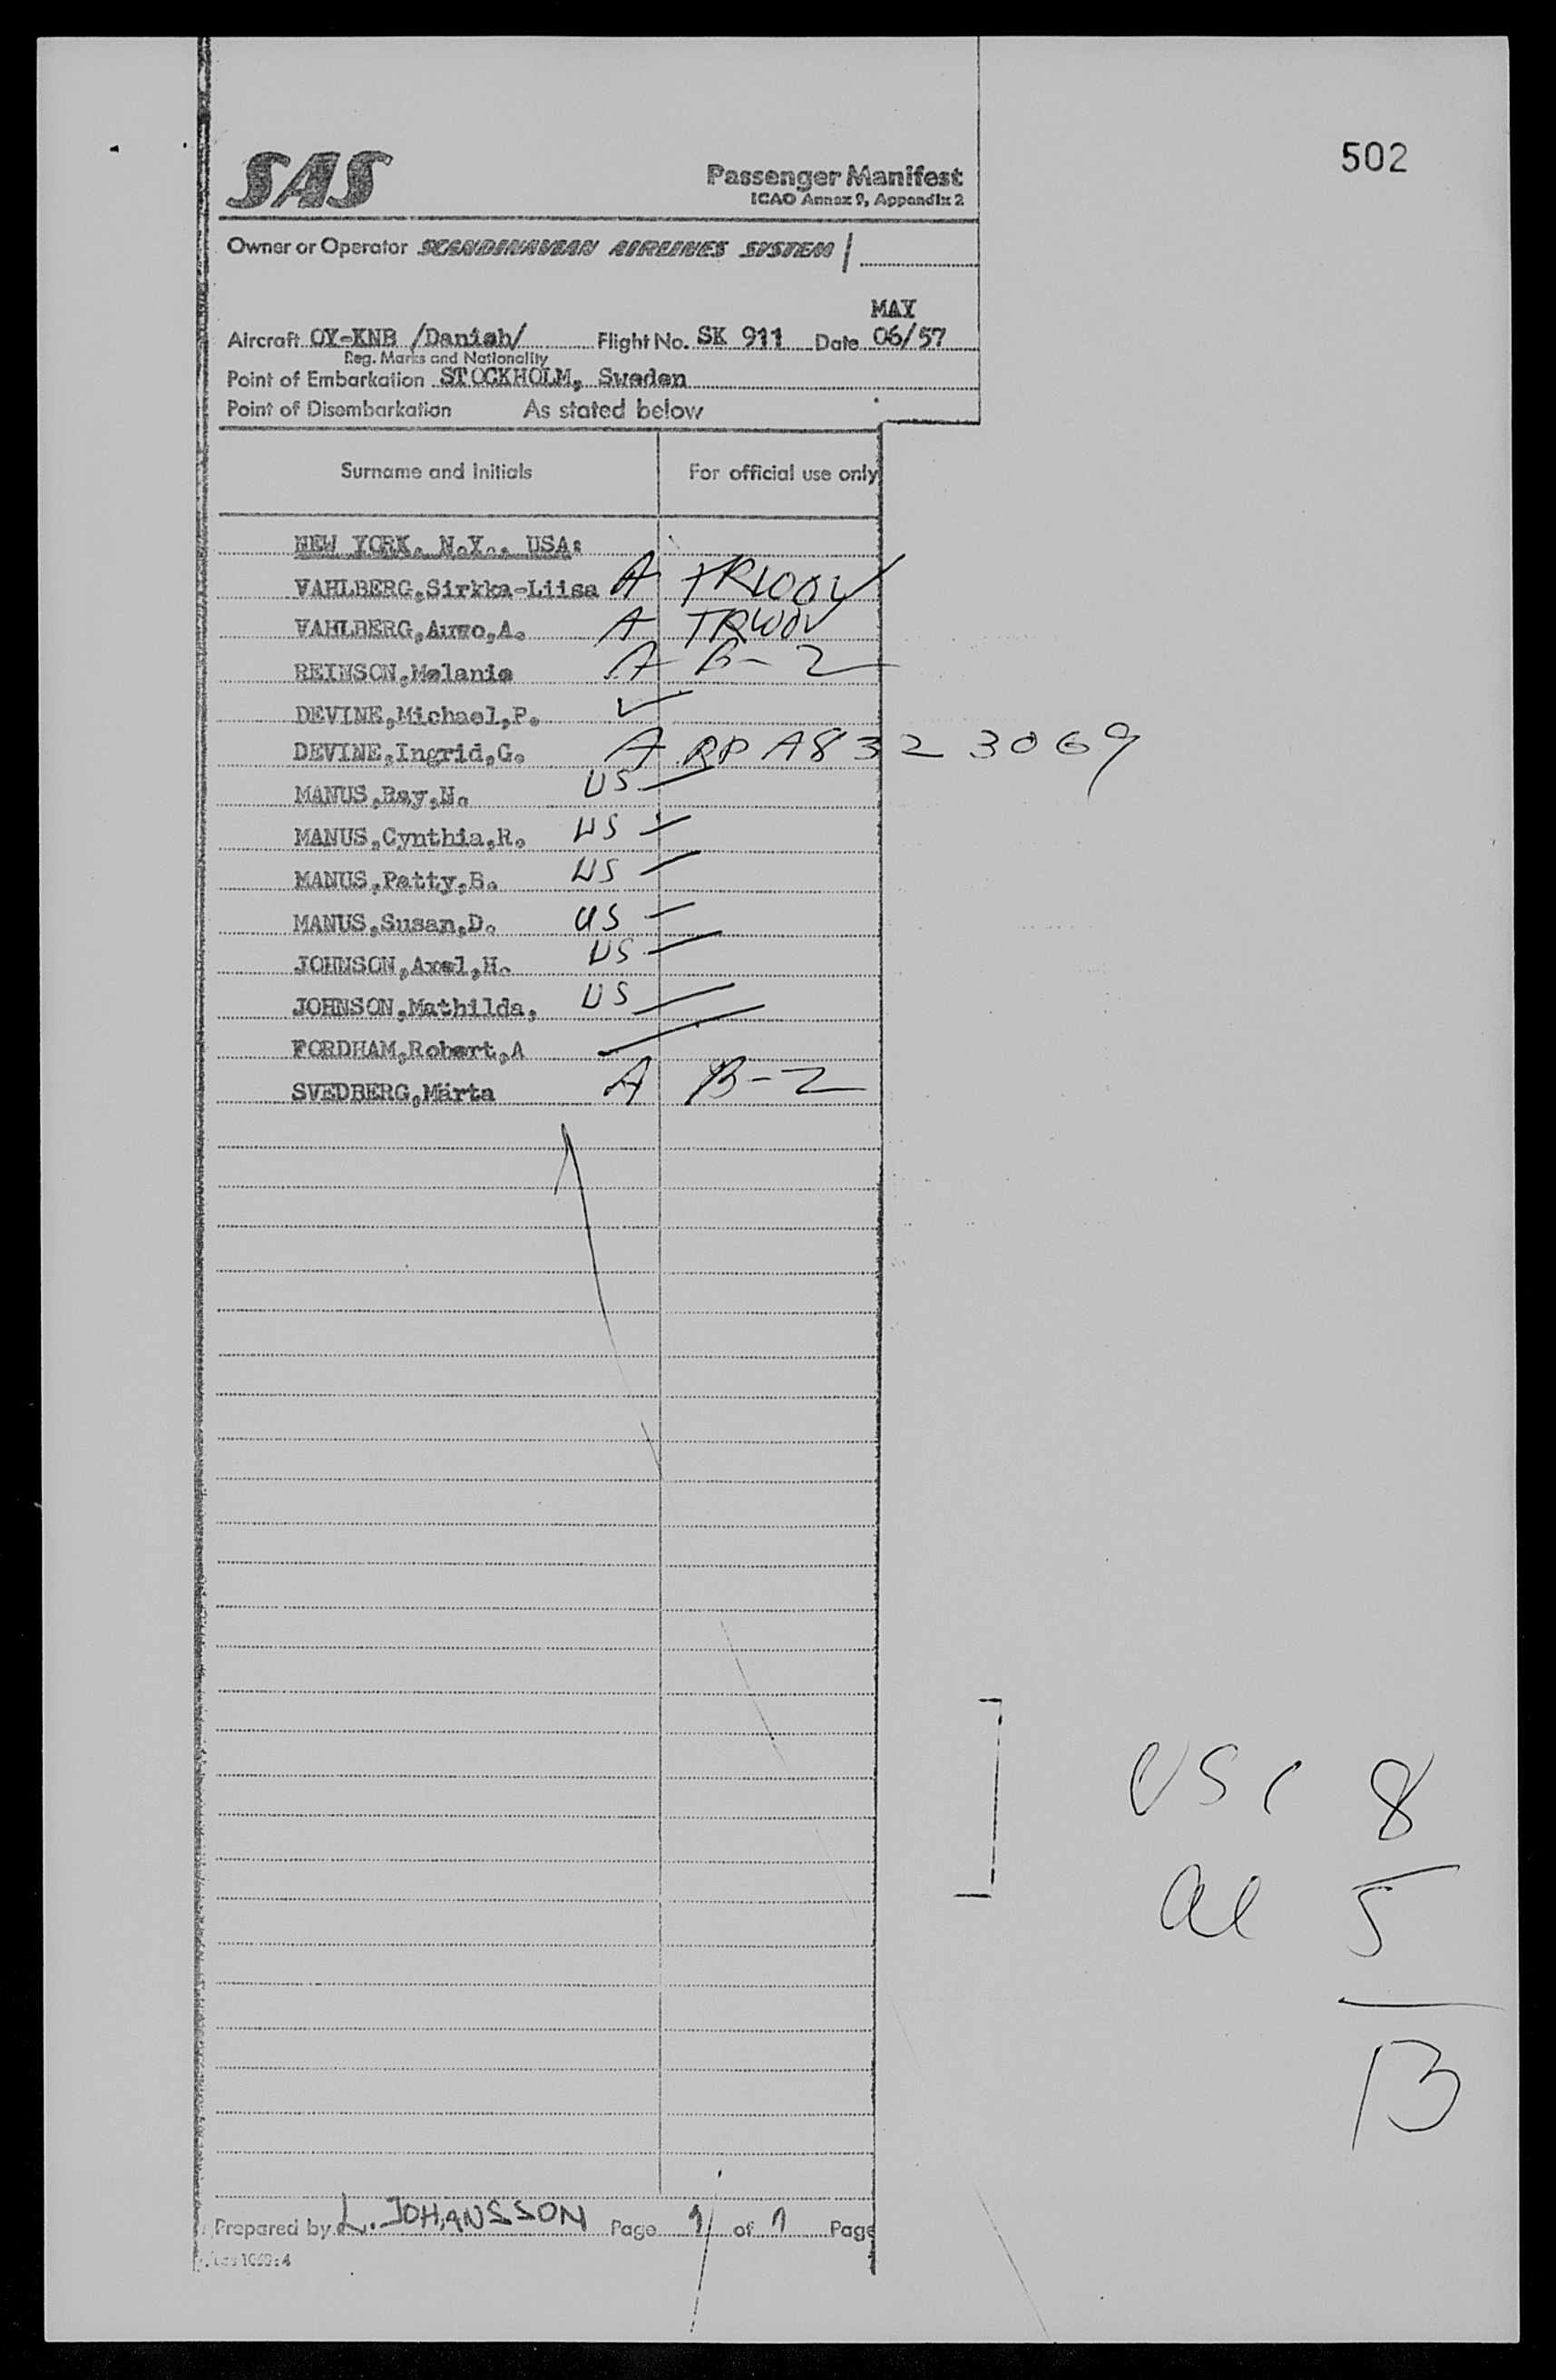 502
SAS
Passenger Manifest
ICAO Annex 9, Appendix 2
Owner or Operator SCANDINAVIAN AIRLINES SYSTEM
MAY
Aircraft OY-KNB /Danish/ Flight No. SK 911 Date 06/57
Reg. Marks and Nationality
Point of Embarkation STOCKHOLM, Sweden
Point of Disembarkation As stated below
Surname and Initials For official use only
NEW YORK, N.Y., USA:
VAHLBERG,Sirkka-Liisa A
VAHLBERG, A. A
REINSON,Melanie A B-2
DEVINE,Michael,P.
DEVINE,Ingrid,G. A RP A8323069
MANUS,Ray,N. US
MANUS,Cynthia,R. US
MANUS,Patty,B. US
MANUS,Susan,D. US
JOHNSON,Axel,H. US
JOHNSON,Mathilda, US
FORDHAM,Robert,A
SVEDBERG,Märta A B-2
USC 8
al 5
13
Prepared by L. JOHANSSON Page 1 of 1 Page